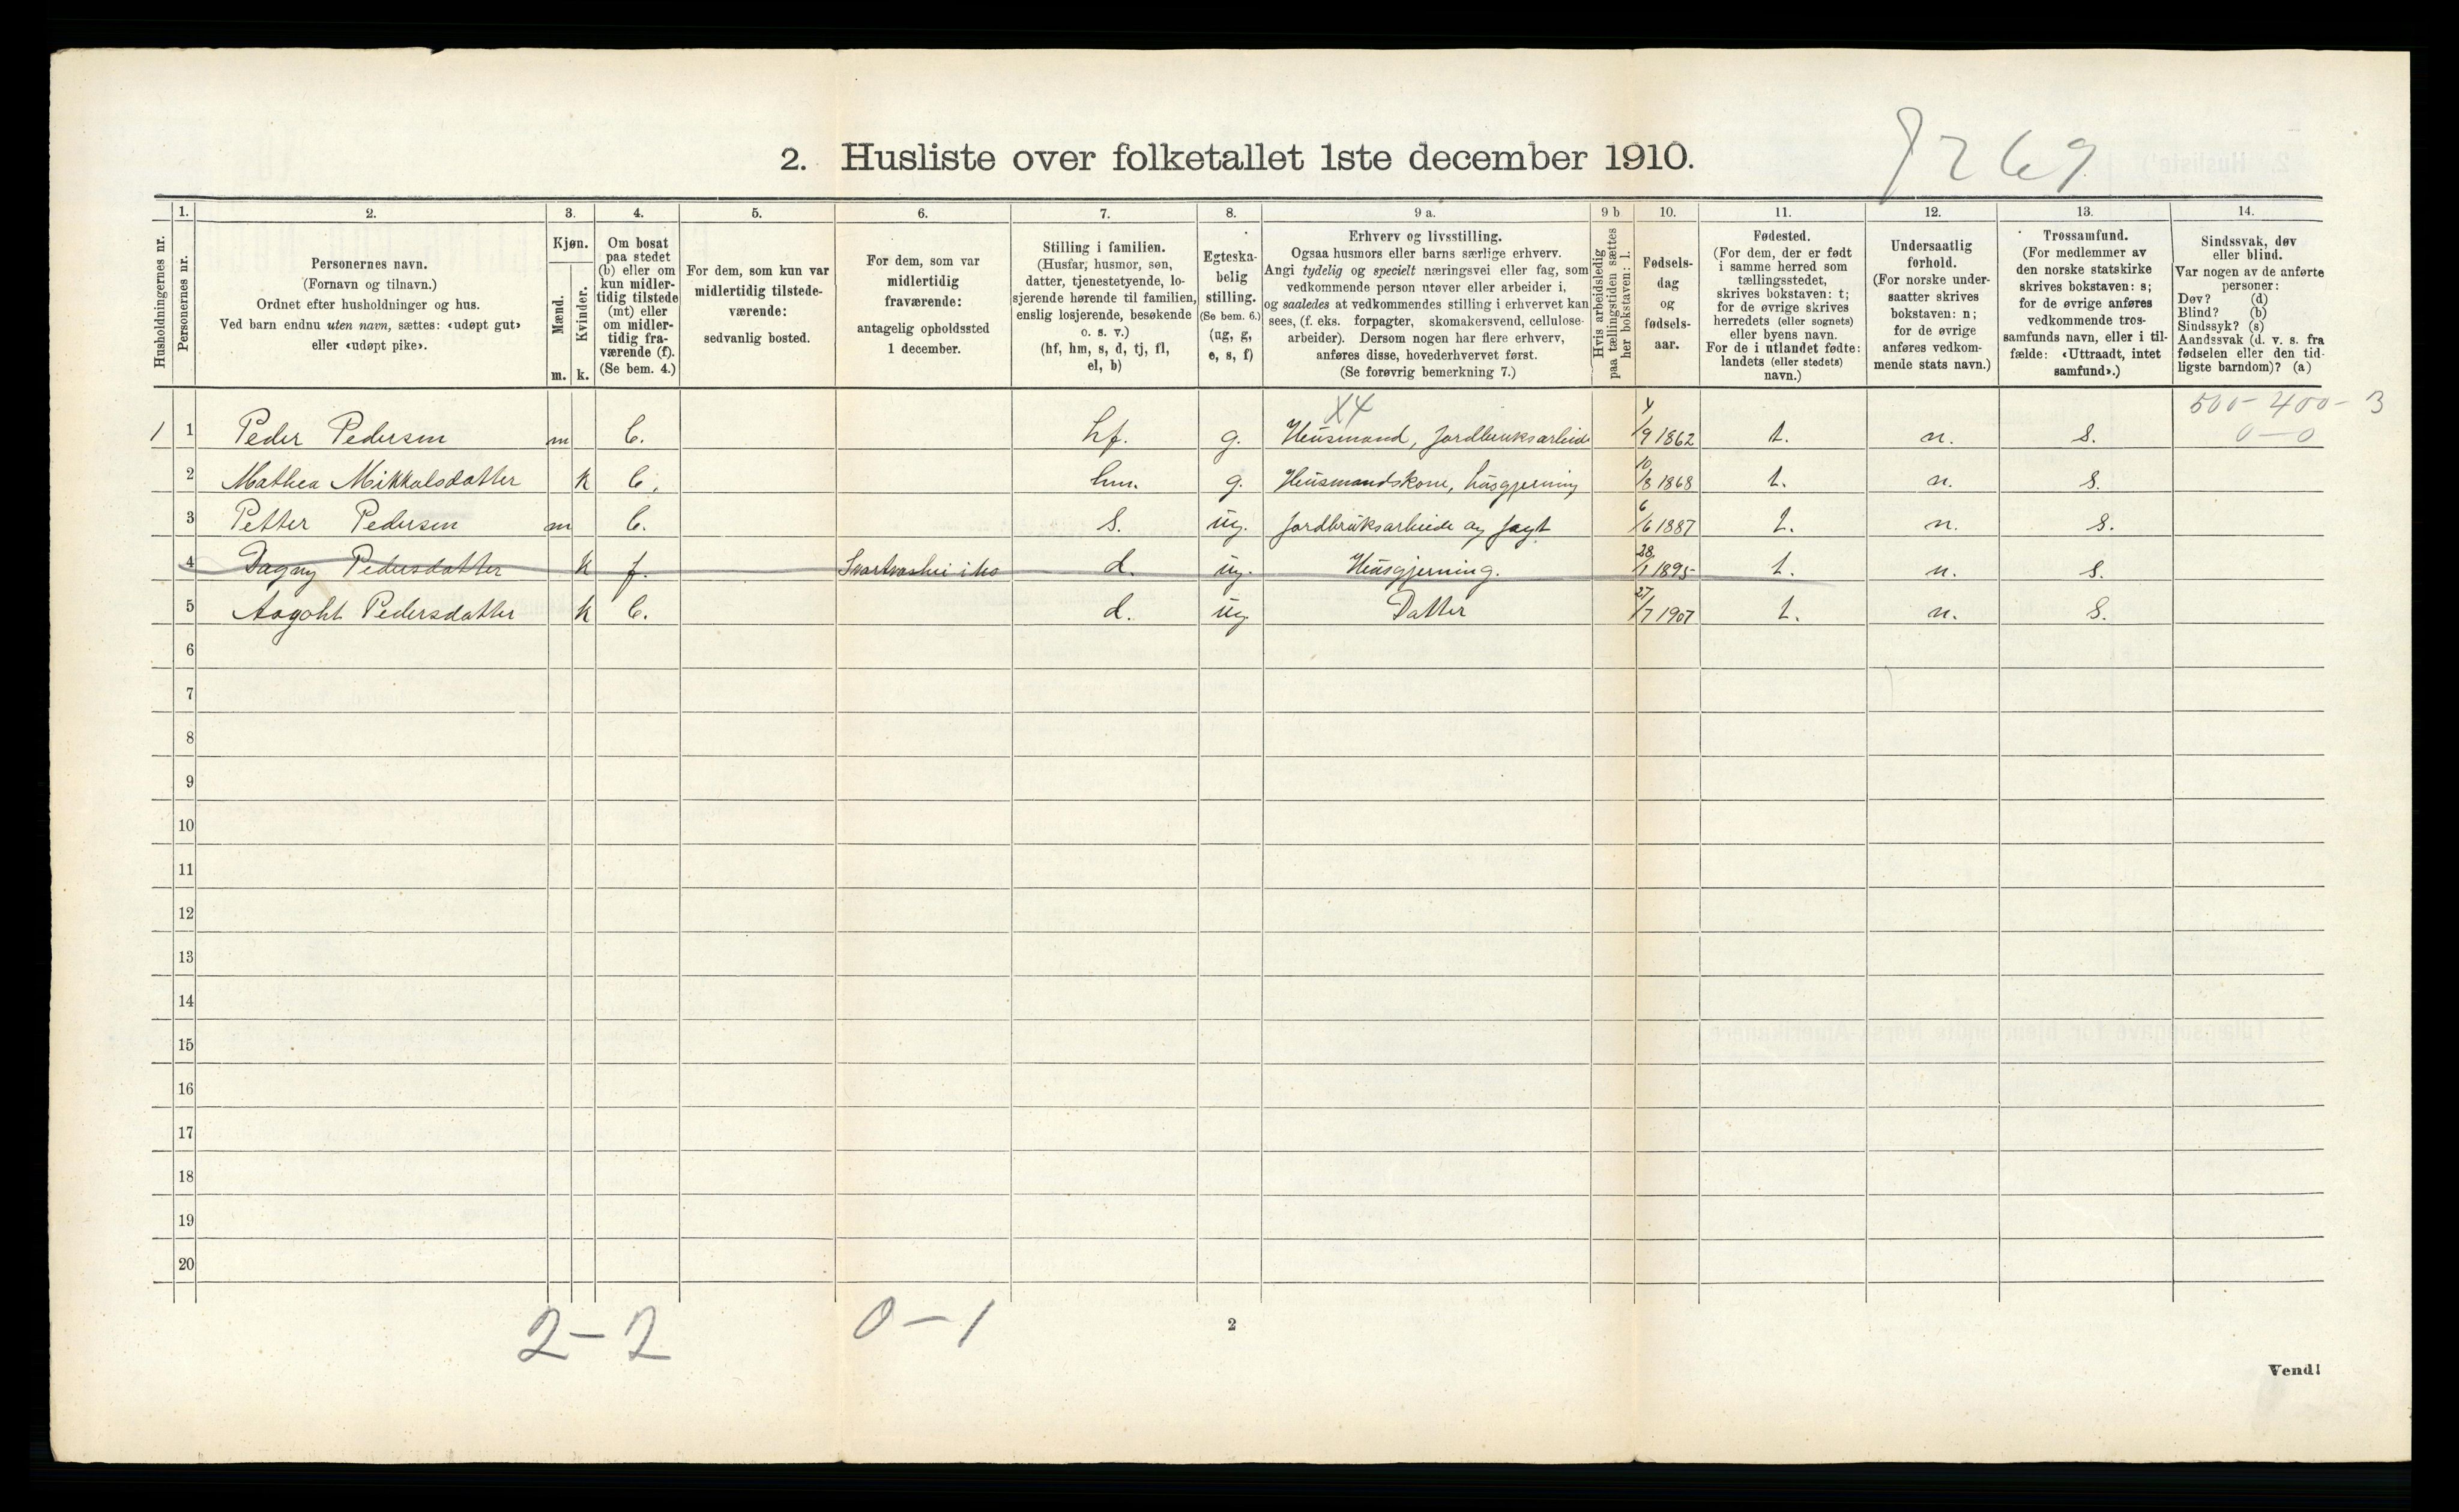 8269
2. Husliste over folketallet 1ste december 1910.
Husholdningernes nr.
1.
Personernes nr.
2.
Personernes navn.
(Fornavn og tilnavn.)
Ordnet efter husholdninger og hus.
Ved barn endnu uten navn, sættes: «udøpt gut»
eller «udøpt pike».
3.
Kjøn.
Mænd.
Kvinder.
m. k.
4.
Om bosat
paa stedet
(b) eller om
kun midler-
tidig tilstede
(mt) eller
om midler-
tidig fra-
værende (f).
(Se bem. 4.)
5.
For dem, som kun var
midlertidig tilstede-
værende:
sedvanlig bosted.
6.
For dem, som var
midlertidig
fraværende:
antagelig opholdssted
1 december.
7.
Stilling i familien.
(Husfar, husmor, søn,
datter, tjenestetyende, lo-
sjerende hørende til familien,
enslig losjerende, besøkende
o. s. v.)
(hf, hm, s, d, tj, fl,
el, b)
8.
Egteska-
belig
stilling.
(Se bem. 6.)
(ug, g,
e, s, f)
9 a.
Erhverv og livsstilling.
Ogsaa husmors eller barns særlige erhverv.
Angi tydelig og specielt næringsvei eller fag, som
vedkommende person utøver eller arbeider i,
og saaledes at vedkommendes stilling i erhvervet kan
sees, (f. eks. forpagter, skomakersvend, cellulose-
arbeider). Dersom nogen har flere erhverv,
anføres disse, hovederhvervet først.
(Se forøvrig bemerkning 7.)
9 b
Hvis arbeidsledig
paa tællingstiden sættes
her bokstaven: l.
10.
Fødsels-
dag
og
fødsels-
aar.
11.
Fødested.
(For dem, der er født
i samme herred som
tællingsstedet,
skrives bokstaven: t;
for de øvrige skrives
herredets (eller sognets)
eller byens navn.
For de i utlandet fødte:
landets (eller stedets)
navn.)
12.
Undersaatlig
forhold.
(For norske under-
saatter skrives
bokstaven: n;
for de øvrige
anføres vedkom-
mende stats navn.)
13.
Trossamfund.
(For medlemmer av
den norske statskirke
skrives bokstaven: s;
for de øvrige anføres
vedkommende tros-
samfunds navn, eller i til-
fælde: «Uttraadt, intet
samfund».)
14.
Sindssvak, døv
eller blind.
Var nogen av de anførte
personer:
Døv? (d)
Blind? (b)
Sindssyk? (s)
Aandssvak (d. v. s. fra
fødselen eller den tid-
ligste barndom)? (a)
X4 500-400-3
1 1 Peder Pedersen m b. hf. g. Husmand, jordbruksarbeide 4/9 1862 t. n. s. 0-0
2 Mathea Mikkalsdatter k b. hm. g. Husmandskone, husgjerning 10/8 1868 t. n. s.
3 Petter Pedersen m b. s. ug. jordbruksarbeide og jagt 6/6 1887 t. n. s.
4 Dagny Pedersdatter k f. i Mo d. ug. Husgjerning. 28/1 1895 t. n. s.
5 Aagoht Pedersdatter k b. d. ug. Datter 27/7 1907 t. n. s.
6
7
8
9
10
11
12
13
14
15
16
17
18
19
20
2-2 0-1
2
Vend!